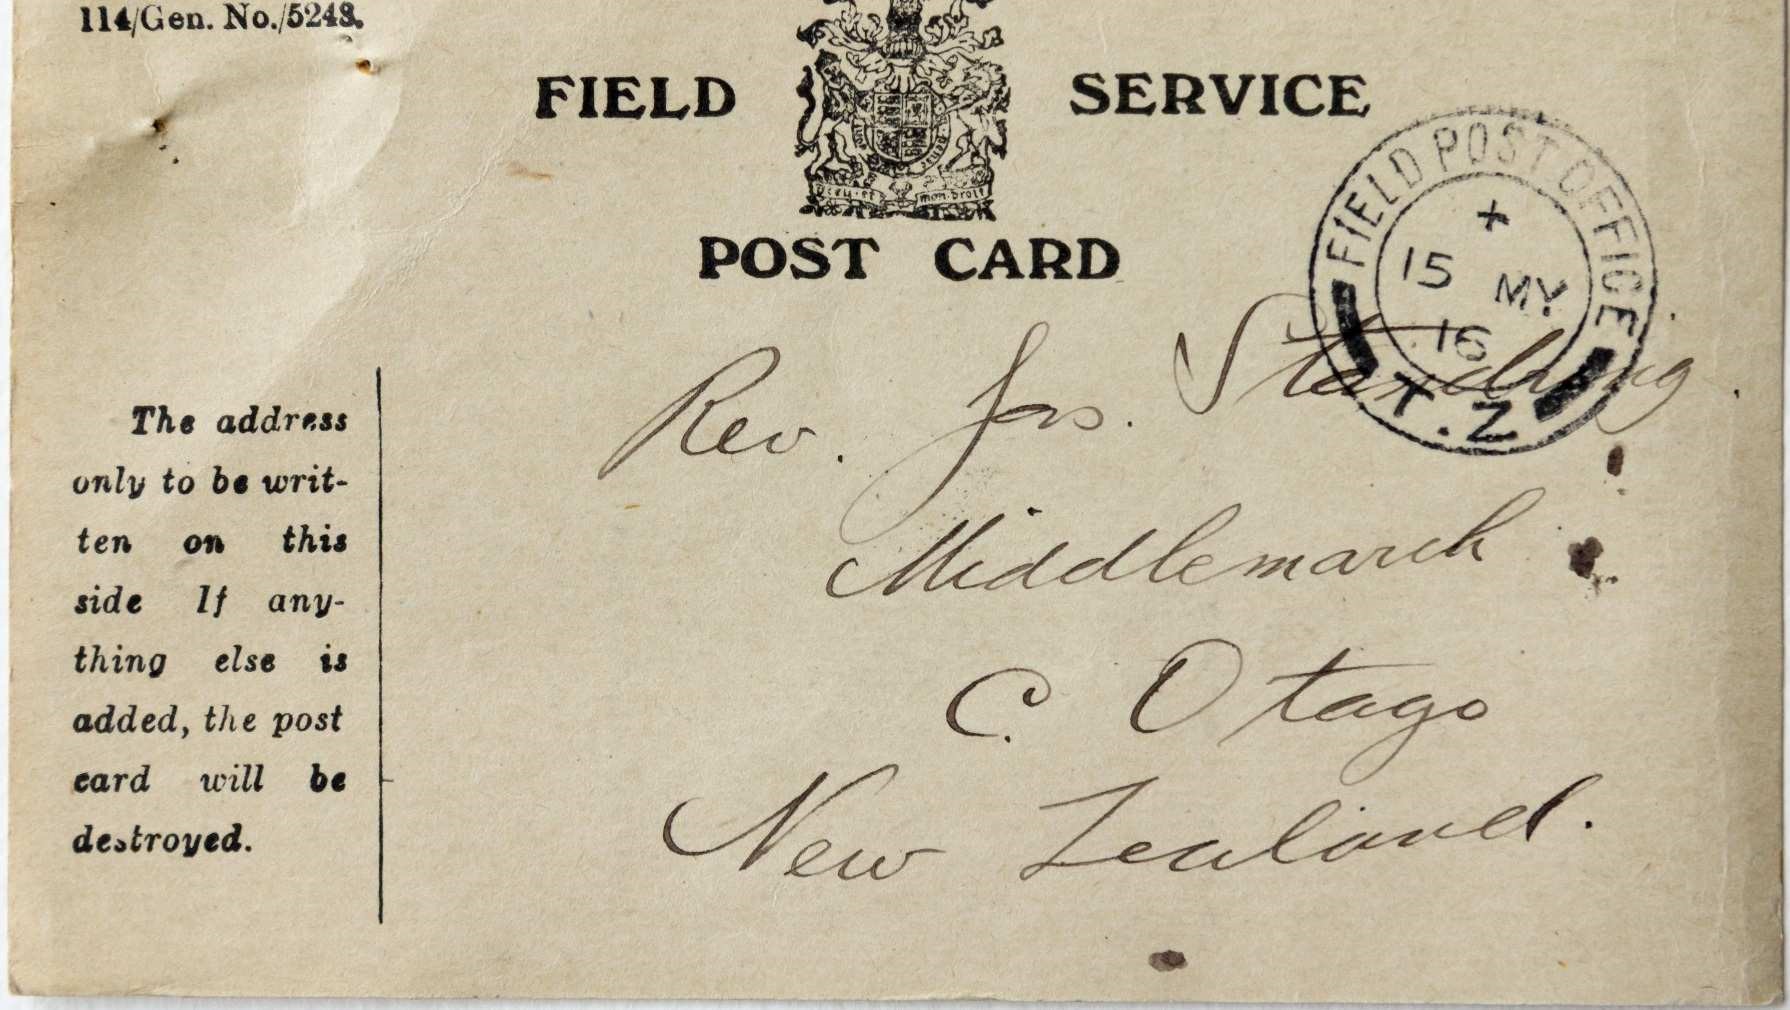 114/Gen. No./5248.
FIELD SERVICE
Dieu et mon droit
POST CARD
FIELD POST OFFICE
+
15 MY
16
T.Z
Rev. Jas. Standring
Middlemarch
C. Otago
New Zealand.
The address
only to be writ-
ten on this
side If any-
thing else is
added, the post
card will be
destroyed.